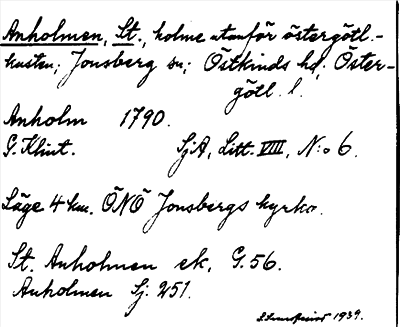 Anholmen, St., holme utanför östergötl.-
kusten; Jonsberg sn; Östkinds hd; Öster-
götl. l.
Anholm 1790.
G. Klint. SjA, Litt. VIII, N:o 6.
Läge 4 km. ÖNÖ Jonsbergs kyrka.
St. Anholmen ek. G. 56.
Anholmen Sj. 251.
1939.